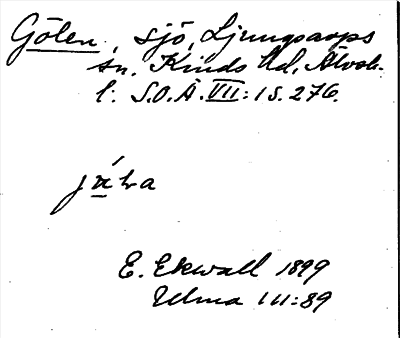 Gölen, sjö, Ljungsarps
sn. Kinds hd, Älvsb.
l. S.O.Ä. VII:1 S. 276.
E. Ekwall 1899
Ulma 111:89